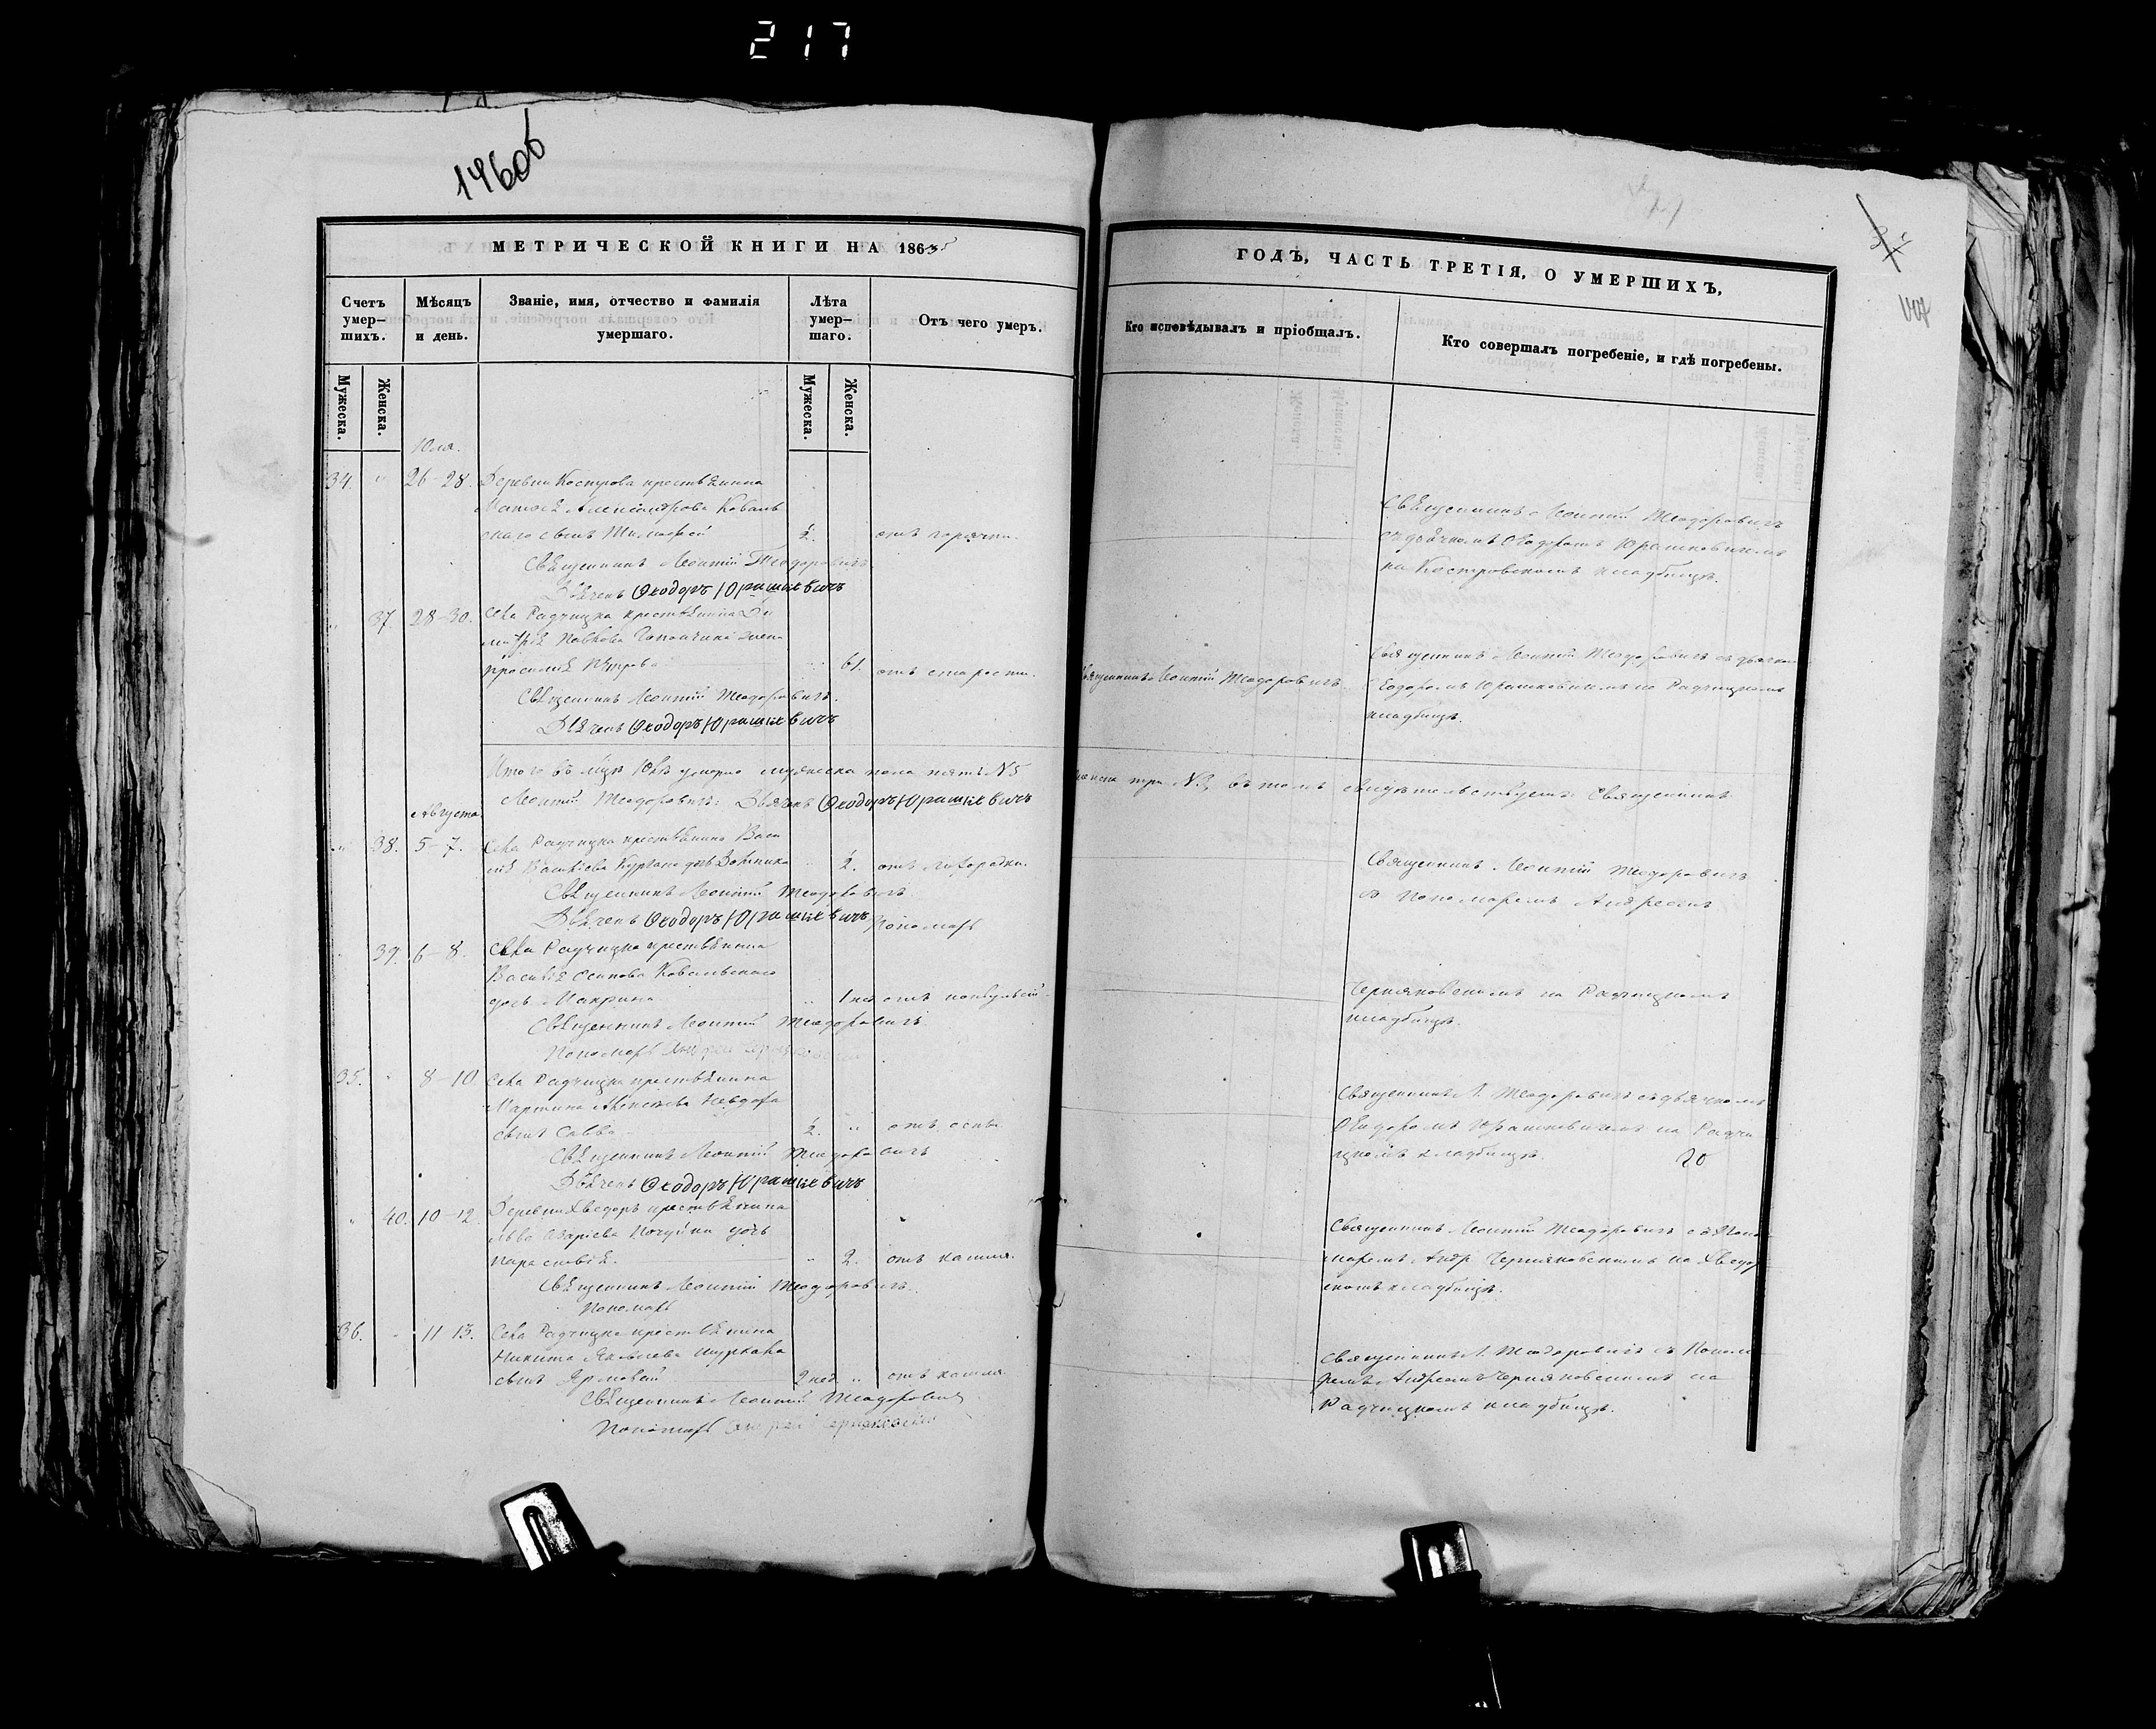 217
1460б
МЕТРИЧЕСКОЙ КНИГИ НА 1865
ГОДЪ, ЧАСТЬ ТРЕТІЯ, О УМЕРШИХЪ,
Счетъ умер-шихъ.
Мѣсяцъ и день.
Званіе, имя, отчество и фамилія умершаго.
Лѣта умер-шаго.
Отъ чего умеръ.
Кто исповѣдывалъ и пріобщалъ.
Кто совершалъ погребеніе, и гдѣ погребены.
Мужеска.
Женска.
Мужеска.
Женска.
Юля.
34. " 26-28. Деревни Кострова крестьянина
Матѳея Александрова Коваль
скаго сынъ Тимоѳей ½. отъ горячки.
Священникъ Леонтій Теодоровичъ
Дьячекъ Ѳеодоръ Юрашкевичъ
Священникъ Леонтій Теодоровичъ
съ дьячкомъ Ѳеодоромъ Юрашкевичемъ
на Костровскомъ кладбищѣ.
" 37. 28-30. Села Радчицка крестьянина Ди
митрія Павлова жена
Петрова " 61. отъ старости.
Священникъ Леонтій Теодоровичъ.
Дьячекъ Ѳеодоръ Юрашкевичъ
Священникъ Леонтій Теодоровичъ.
Священникъ Леонтій Теодоровичъ съ дьячкомъ
Ѳеодоромъ Юрашкевичемъ на Радчицкомъ
кладбищѣ.
Итого въ Юлѣ умерло мужеска пола пять №5
женска три №3, въ томъ свидѣтельствуемъ: Священникъ
Леонтій Теодоровичъ. Дьячекъ Ѳеодоръ Юрашкевичъ
Августа
" 38. 5-7. Села Радчицка крестьянина Васи
лія дочь " ½. отъ лихорадки.
Священникъ Леонтій Теодоровичъ.
Дьячекъ Ѳеодоръ Юрашкевичъ Пономарь
Священникъ Леонтій Теодоровичъ
съ Пономаремъ Андреемъ
39. 6-8. Села Радчицка крестьянина
Василія Осипова Ковальскаго
дочь Макрина " 1 нед отъ
Священникъ Леонтій Теодоровичъ.
Пономарь Андрей Черняковскій
Черняковскимъ на Радчицкомъ
кладбищѣ.
35. " 8-10 Села Радчицка крестьянина
Мартина
сынъ Савва ½. " отъ оспы
Священникъ Леонтій Теодоровичъ
Дьячекъ Ѳеодоръ Юрашкевичъ
Священникъ Л. Теодоровичъ съ дьячкомъ
Ѳеодоромъ Юрашкевичемъ на Радчи
цкомъ кладбищѣ.
20
" 40. 10-12. Деревни Хведоръ крестьянина
дочь
Параскевія. " 2. отъ кашля.
Священникъ Леонтій Теодоровичъ.
Пономарь
Священникъ Леонтій Теодоровичъ съ Поно
маремъ Андр Черняковскимъ на Хведор
скомъ кладбищѣ.
36. " 11-13. Села Радчицка крестьянина
Никиты Яковлева
сынъ Ярмолай 2 нед. " отъ кашля.
Священникъ Леонтій Теодоровичъ
Пономарь Андрей Черняковскій
Священникъ Л. Теодоровичъ съ Понома
ремъ Андреемъ Черняковскимъ на
Радчицкомъ кладбищѣ.